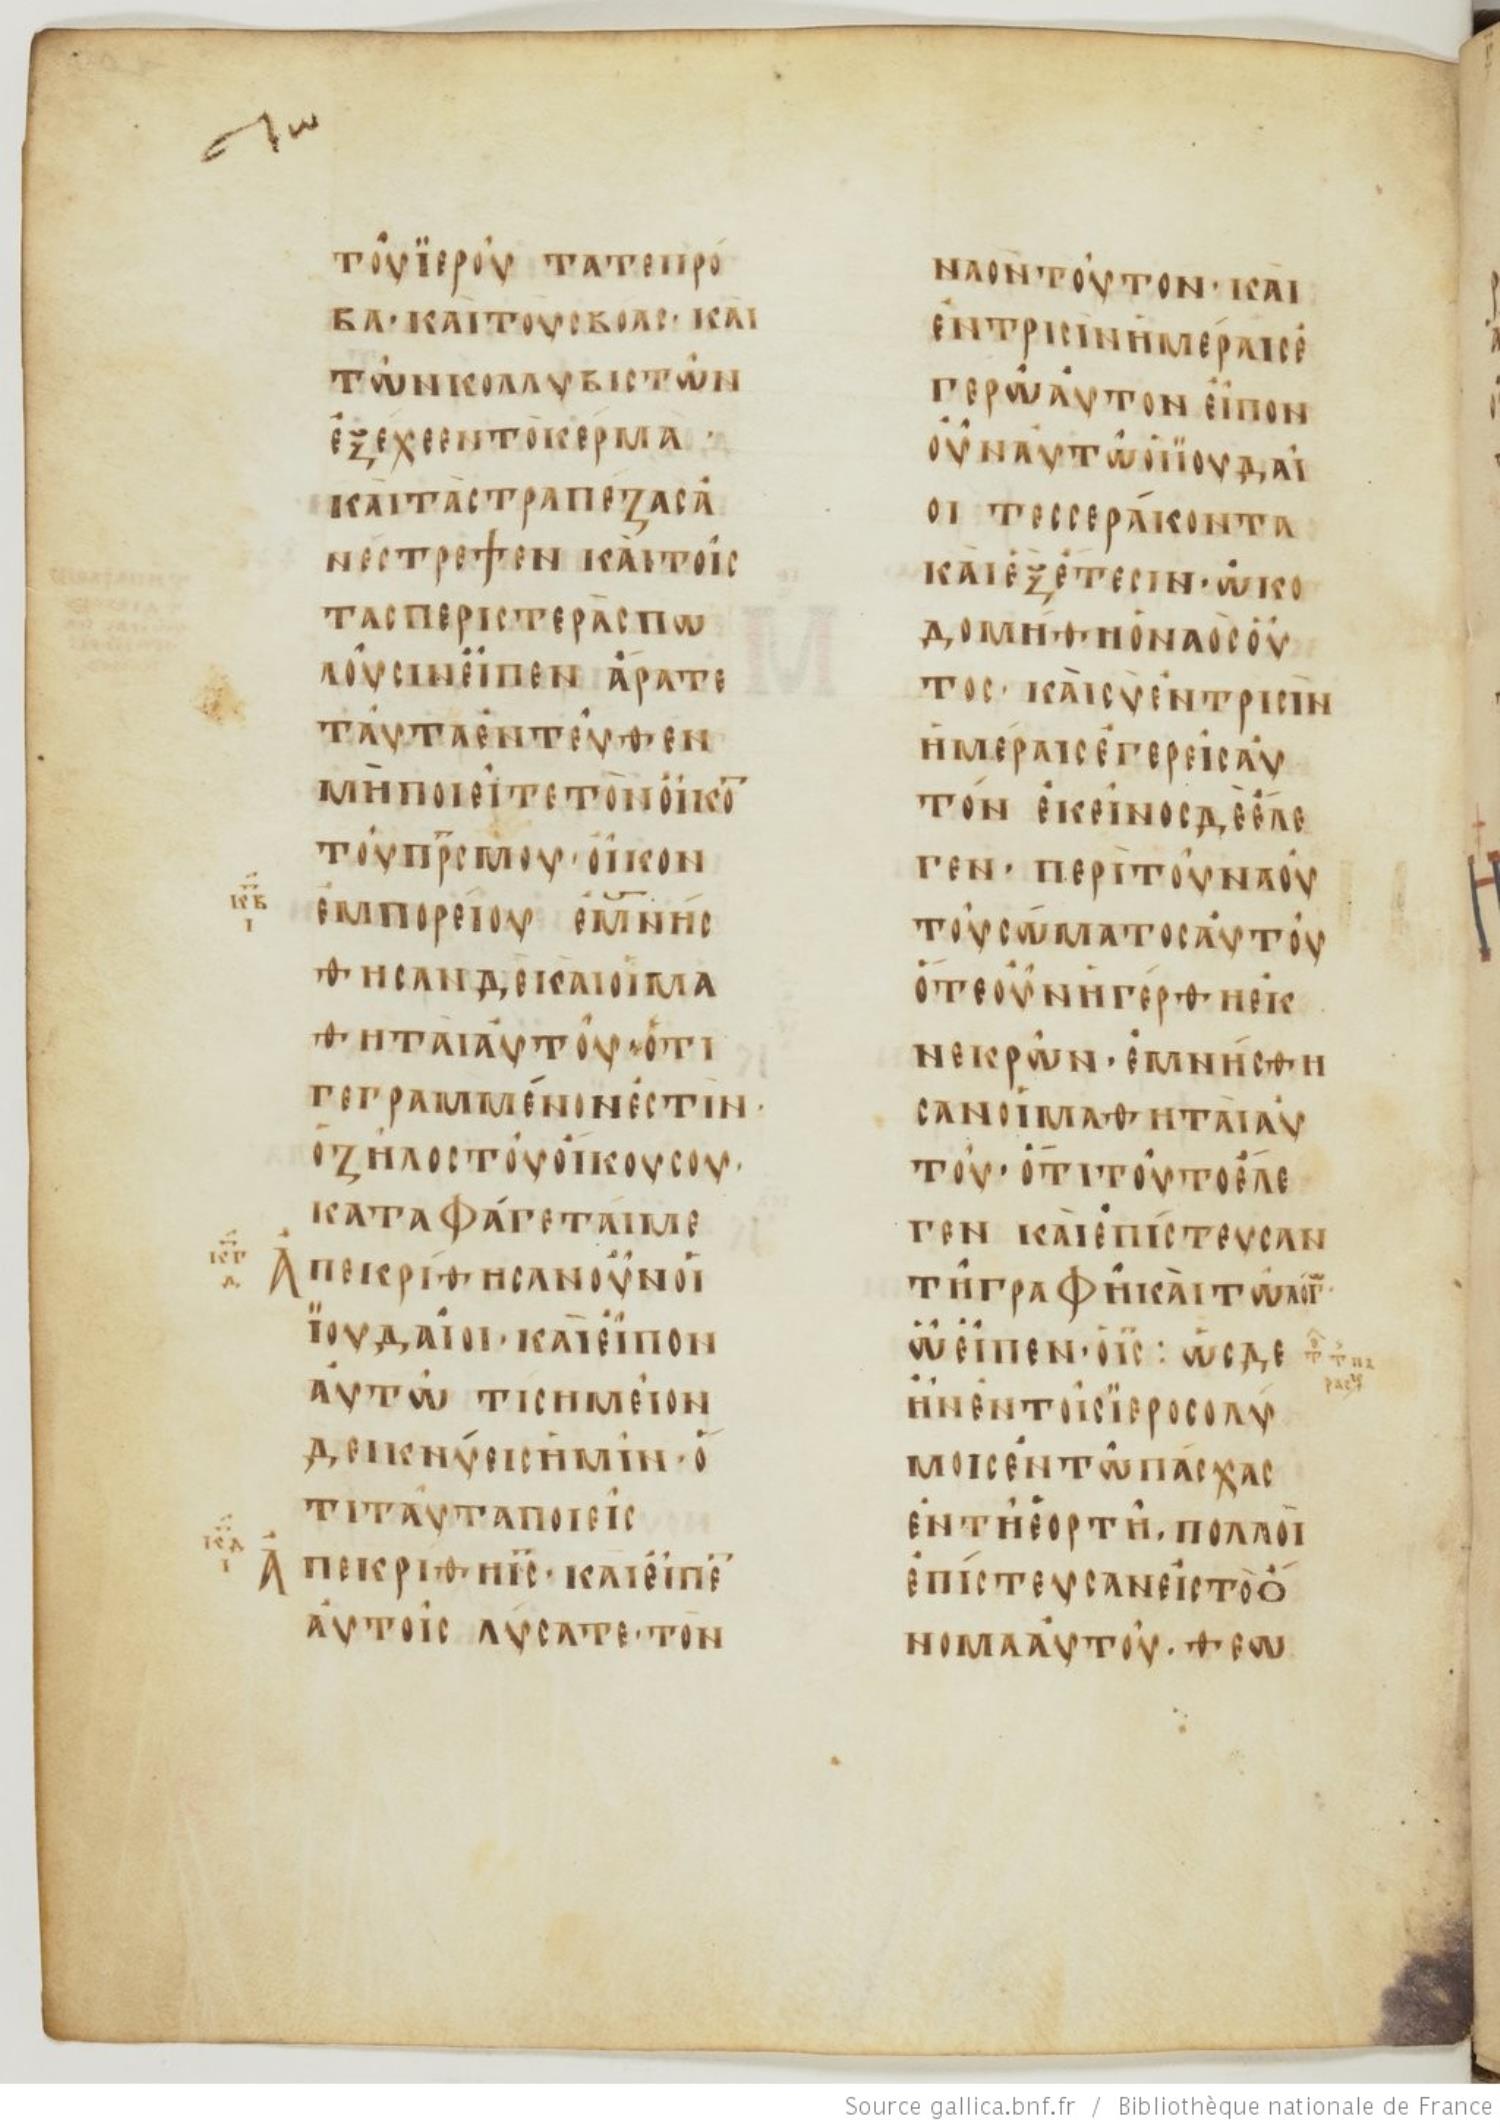 τοῦ ϊεροῦ τάτε πρό
βα· καὶ τοὺς βόας· καὶ
τῶν κολλυβιστῶν
ἐξέχεεν τὸ κέρμα·
καὶ τὰς τραπέζας ἀ
νέστρεψεν καὶ τοῖς
τὰς περιστερὰς πω
λοῦσιν εἶπεν ἄρατε
ταῦτα ἐντεῦθεν
μὴ ποιεῖτε τὸν οἶκο̅
τοῦ πρ̅ς μου· οἶκον
κβ
ι
ἐμπορείου ἐμνής
θησαν δὲ καὶ οἱ μα
θηταὶ αὐτοῦ· ὅτι
γεγραμμένον ἐστὶν·
ὁ ζῆλος τοῦ οἴκου σου·
καταφάγεταί με
κγ
α
Ἀπεκρίθησαν οὖν οἱ
ϊουδαῖοι· καὶ εἶπον
αὐτῶ τί σημεῖον
δεικνύεις ἡμῖν· ὅ
τι ταῦτα ποιεῖς
κδ
ι
Ἀπεκρίθη ι̅ς· καὶ εἶπε̅
αὐτοῖς λύσατε· τὸν
ναὸν τοῦτον· καὶ
ἐν τρισὶν ἡμέραις ἐ
γερῶ αὐτόν εἶπον
οὖν αὐτῶ οἱ ϊουδαῖ
οι τεσσεράκοντα
καὶ ἓξ ἔτεσιν· ὠκο
δομήθη ὁ ναὸς οὗ
τος· καὶ σὺ ἐν τρισὶν
ἡμέραις ἐγερεῖς αὐ
τόν ἐκεῖνος δὲ ἔλε
γεν· περὶ τοῦ ναοῦ
τοῦ σώματος αὐτοῦ
ὅτε οὖν ἠγέρθη ἐκ
νεκρῶν· ἐμνήσθη
σαν οἱ μαθηταὶ αὐ
τοῦ· ὅτι τοῦτο ἔλε
γεν καὶ ἐπίστευσαν
τῆ γραφῆ καὶ τῶ λόγ
ὧ εἶπεν· ὁ ι̅ς: ὡς δὲ
ἦν ἐν τοῖς ϊεροσολύ
μοις ἐν τῶ πάσχας
ἐν τῆ ἑορτῆ· πολλοὶ
ἐπίστευσαν εἰς τὸ ὄ
νομα αὐτοῦ· θεω
Source gallica.bnf.fr / Bibliothèque nationale de France